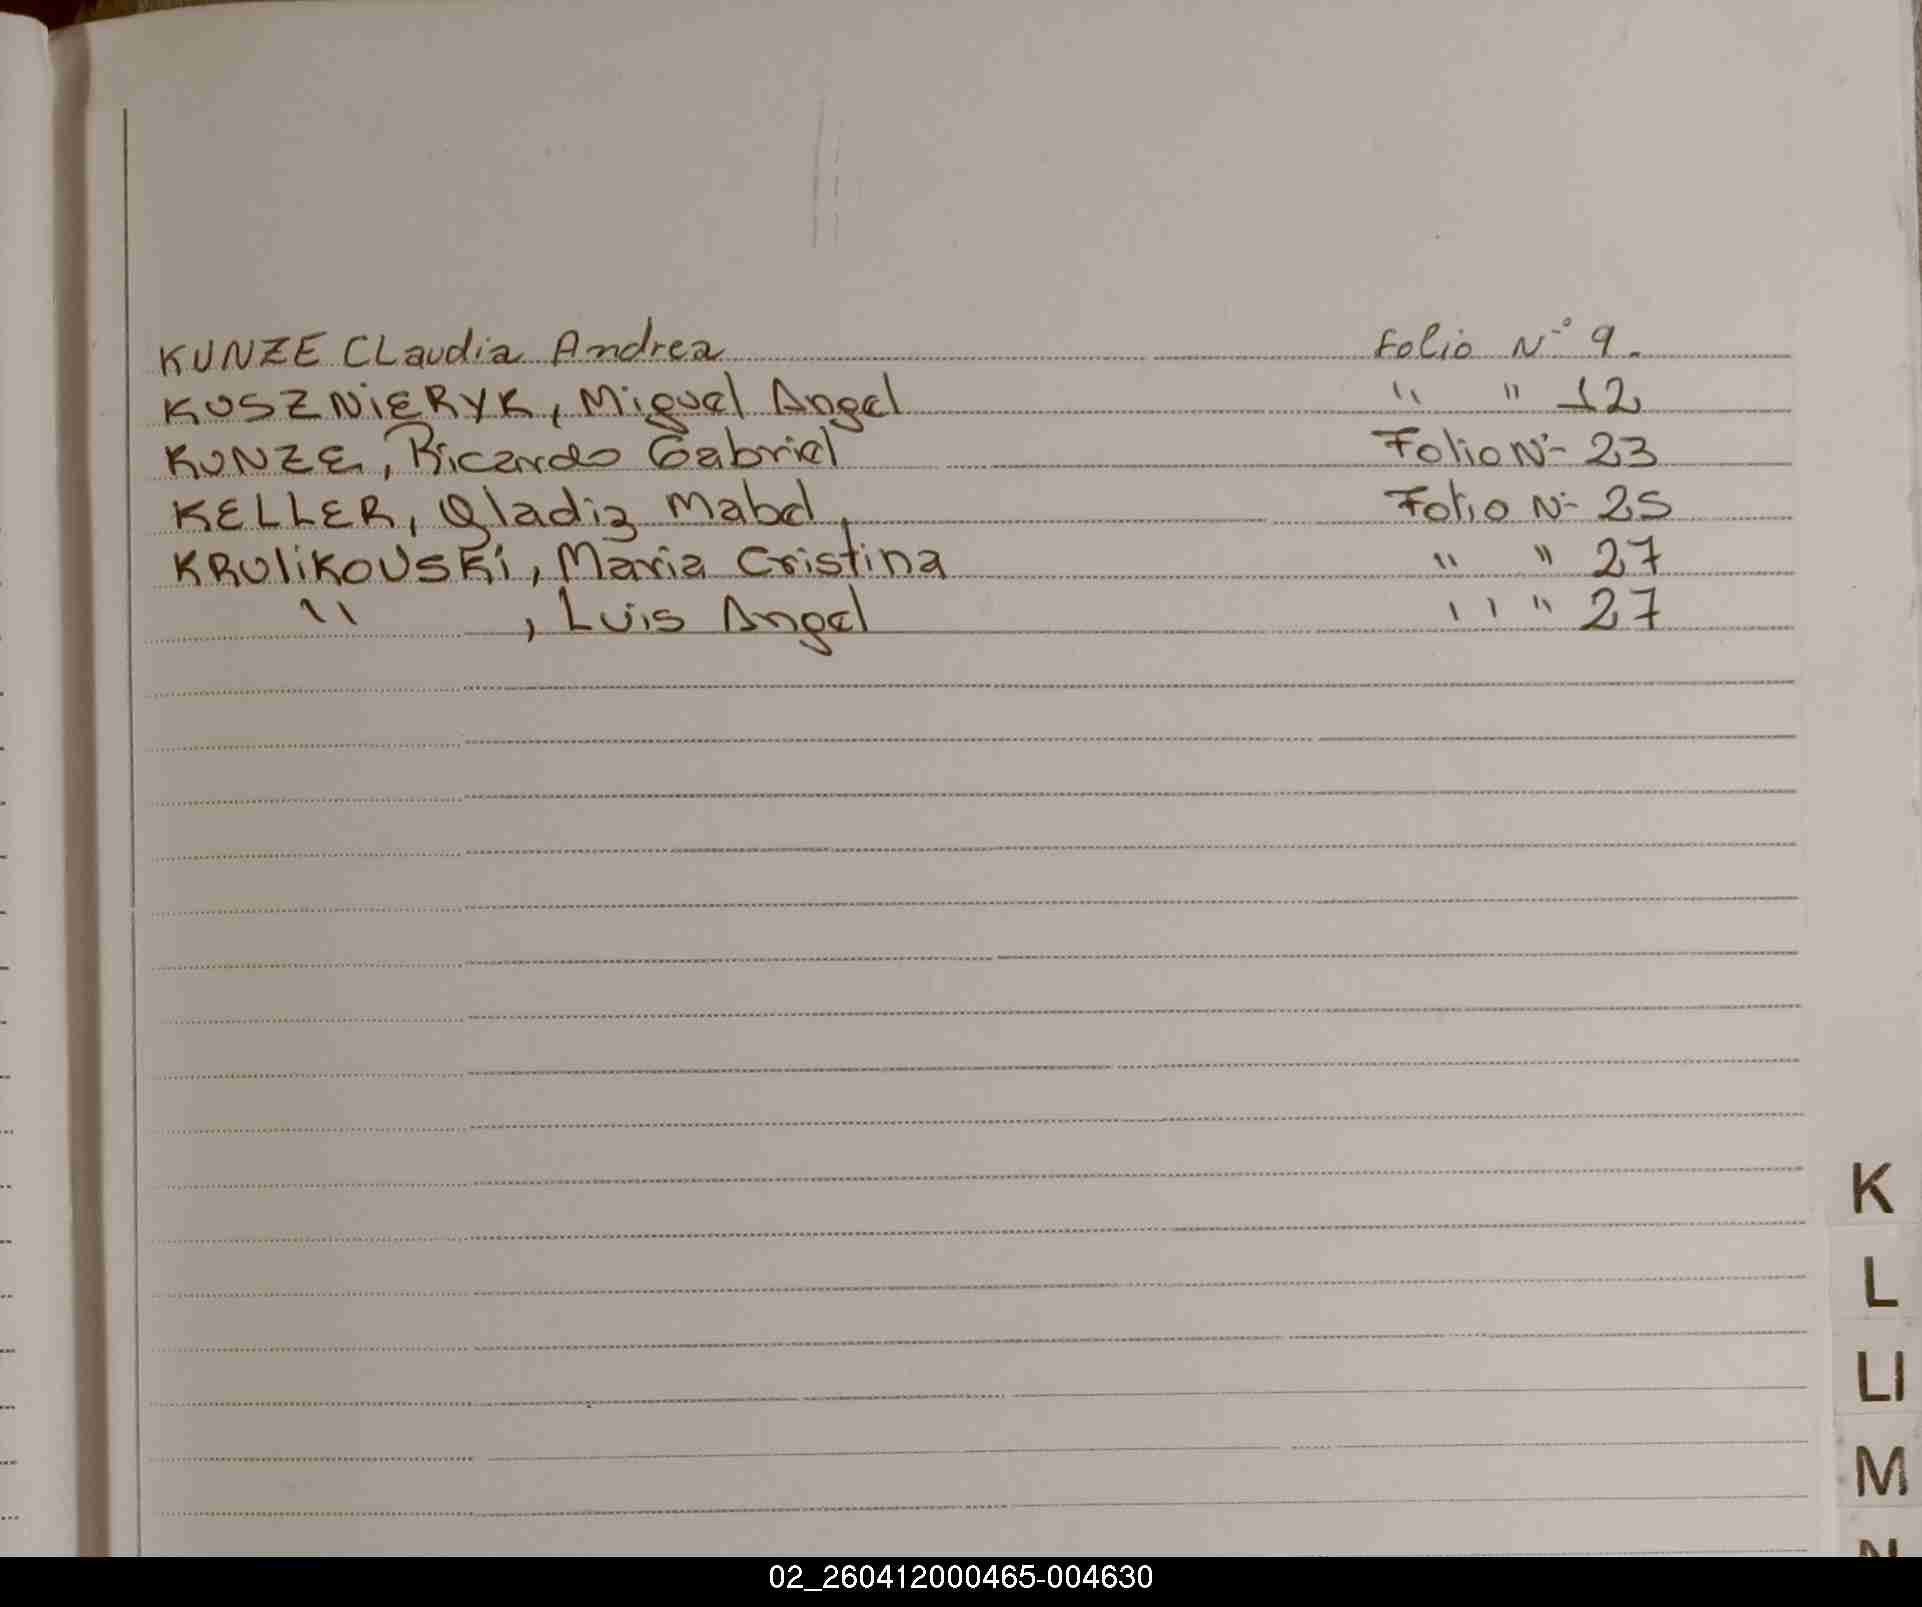 KUNZE CLaudia Andrea Folio N° 9.
KUSZNiERYK, Miguel Angel " " 12
KUNZE, Ricardo Gabriel Folio N°- 23
KELLER, Gladiz Mabel, Folio N°- 25
KRUliKOUSKi, Maria Cristina " " 27
" , Luis Angel " " 27
K
L
Ll
M
N
02_260412000465-004630